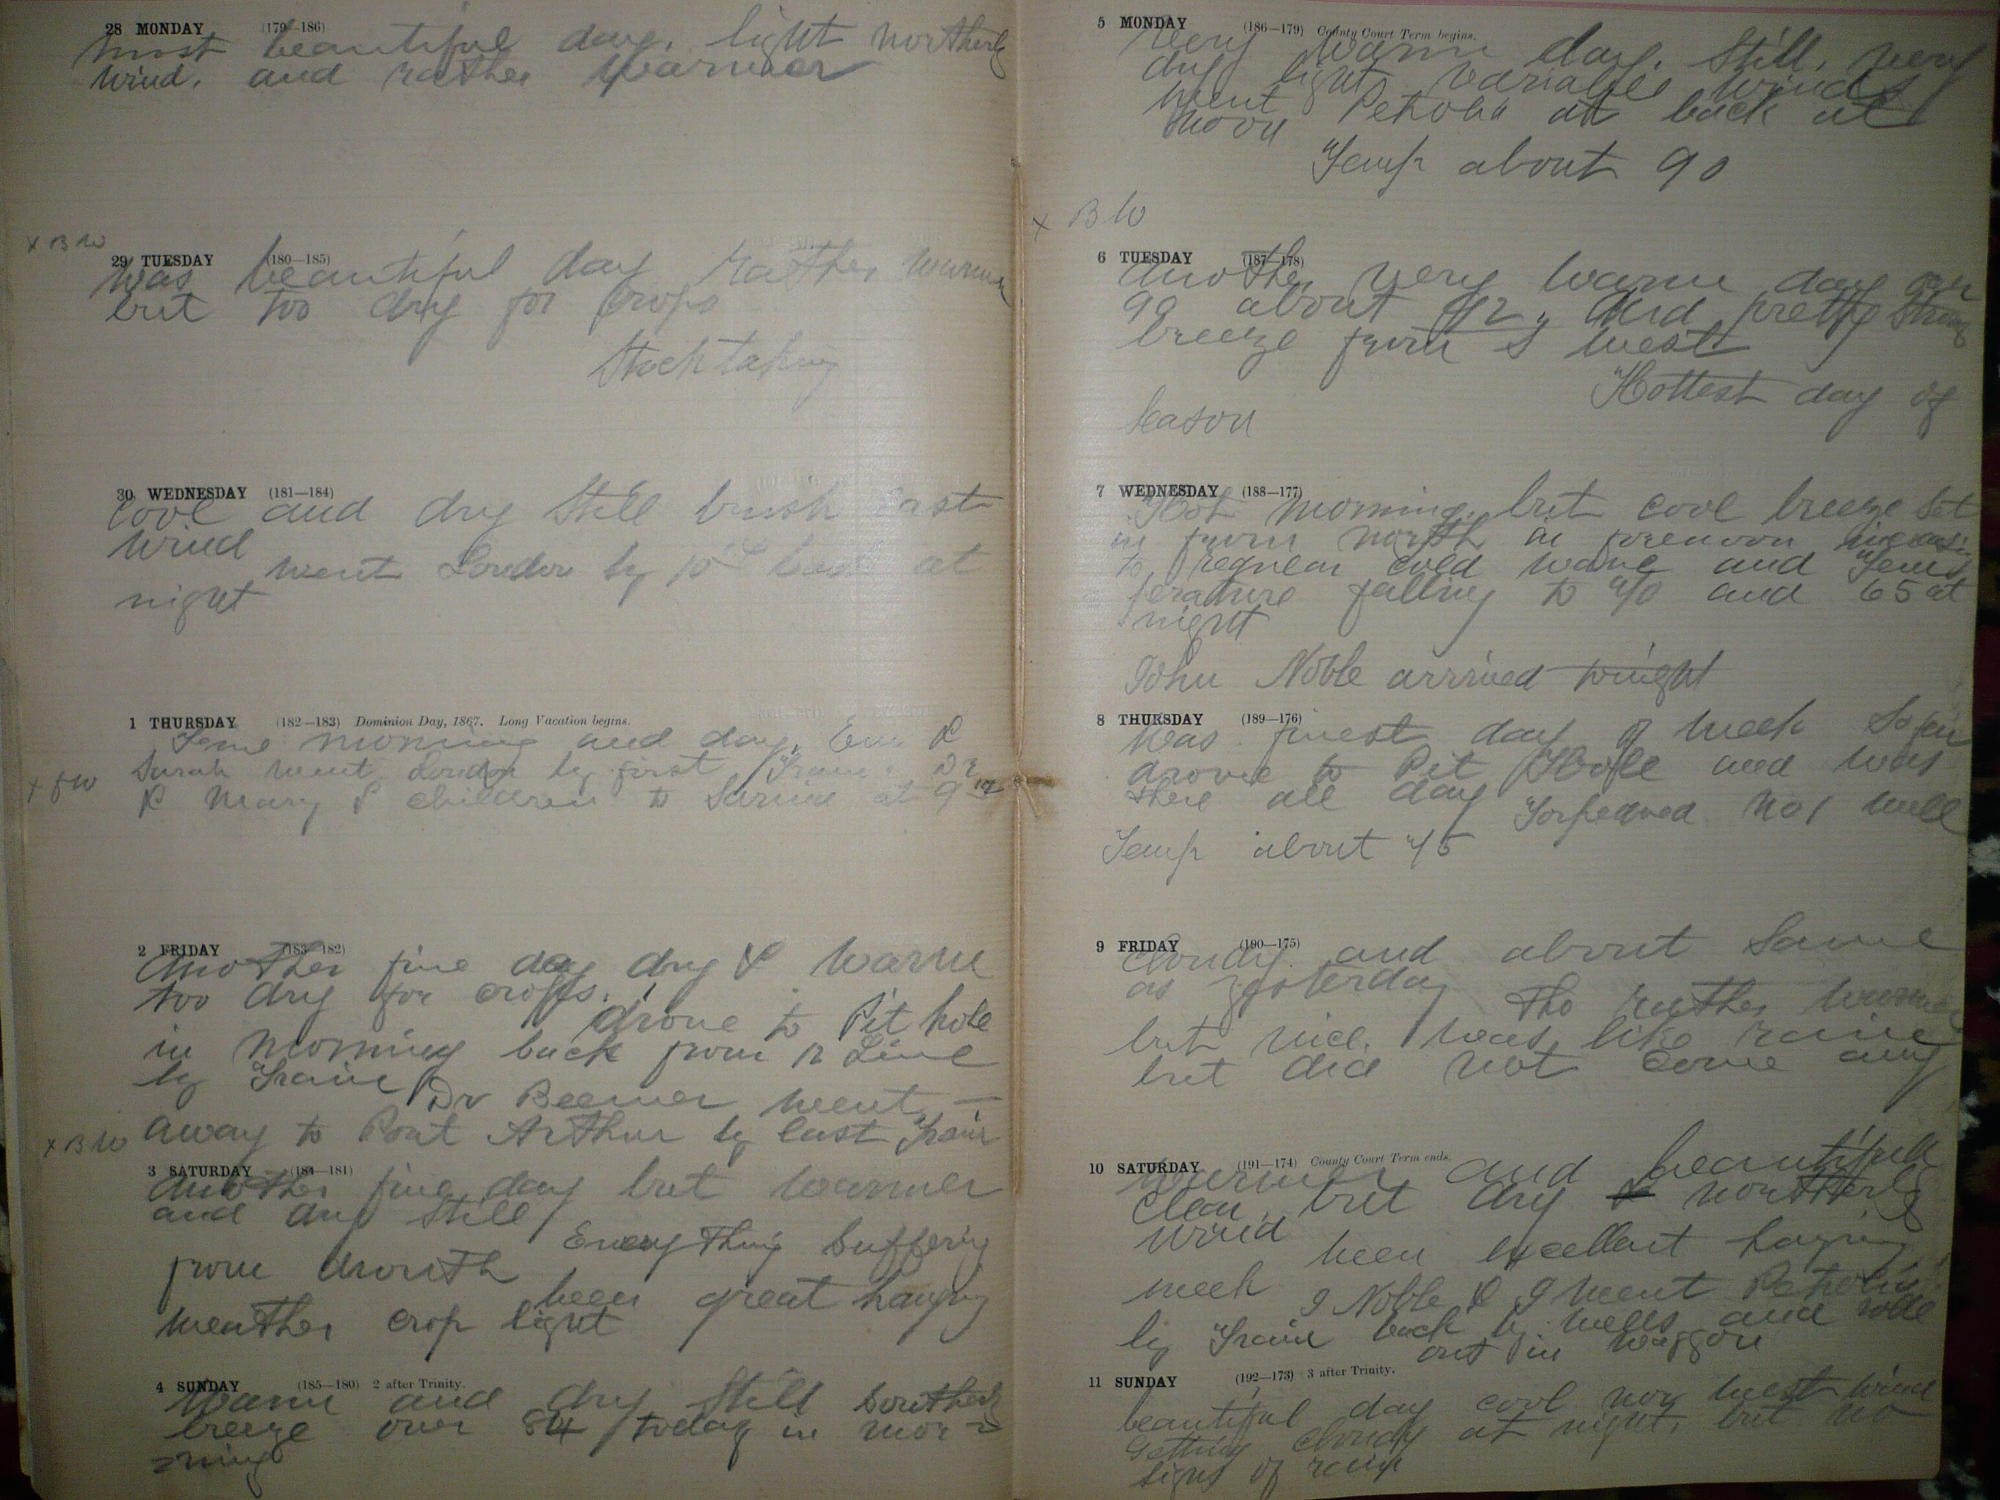 28 MONDAY (179—186)
most beautiful day. light northerly
wind. and rather warmer
x B W
29 TUESDAY (180—185)
was beautiful day rather warmer
but too dry for crops
Stocktaking
30 WEDNESDAY (181—184)
cool and dry still brush East
wind
went London by 10 back at
night
1 THURSDAY (182—183) Dominion Day, 1867. Long Vacation begins.
Same morning and day. Em &
Sarah went London by first Train. Dr
x B W
& Mary & children to Sarnia at 9
2 FRIDAY (183—182)
Another fine day dry & warm
too dry for crops.
drove to Pit hole
in morning back from 12 Line
by Train Dr Beemer went
x B W
away to Port Arthur by last Train
3 SATURDAY (184—181)
Another fine day but warmer
and dry still
Every Thing suffering
from drouth
been great haying
weather crop light
4 SUNDAY (185—180) 2 after Trinity.
Warm and dry still southerly
breeze over 84 today in mor=
=ning
5 MONDAY (186—179) County Court Term begins.
Very warm day. Still, very
dry light variable winds
went Petrolia at back at
noon
Temp about 90
x B W
6 TUESDAY (187—178)
Another very warm day over
90 about 92, and pretty strong
breeze from S west
Hottest day of
season
7 WEDNESDAY (188—177)
Hot morning. but cool breeze set
in from north in forenoon increasing
to regular cold wave and Tem
perature falling to 70 and 65 at
night
John Noble arrived tonight
8 THURSDAY (189—176)
Was finest day of week so far
drove to Pit Hole and was
there all day Torpedoed No 1 well
Temp about 75
9 FRIDAY (190—175)
Cloudy and about same
as yesterday
Tho rather warmer
but nice. was like raine
but did not come any
10 SATURDAY (191—174) County Court Term ends.
Warmer and beautifull
clear. but dry & northerly
wind
been excellent haying
week
J Noble & I went Petrolia
by Train back by wells and rode
out in waggon
11 SUNDAY (192—173) 3 after Trinity.
beautiful day cool nor west wind
Getting cloudy at night. but no
signs of rain